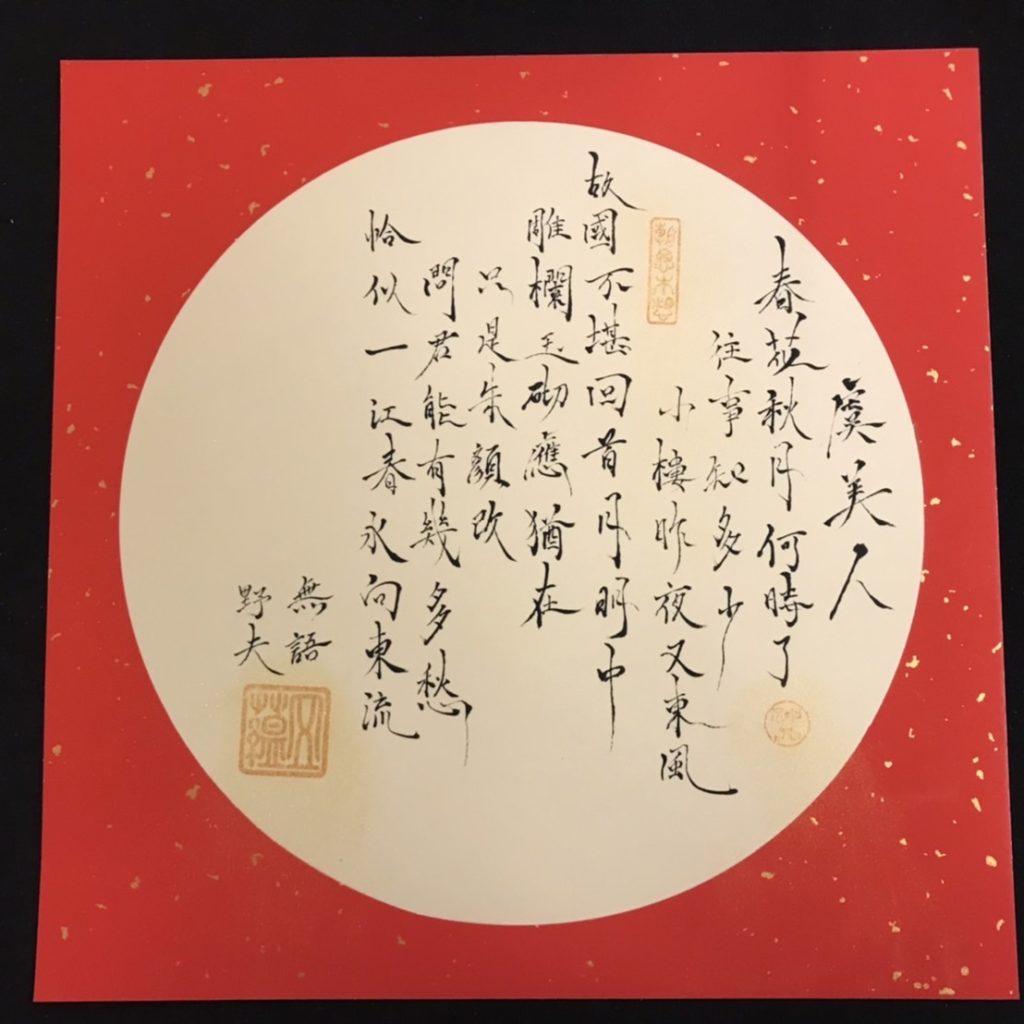 虞美人
春花秋月何時了
往事知多少
小樓昨夜又東風
故國不堪回首月明中
雕欄玉砌應猶在
只是朱顏改
問君能有幾多愁
恰似一江春水向東流
無語
野夫